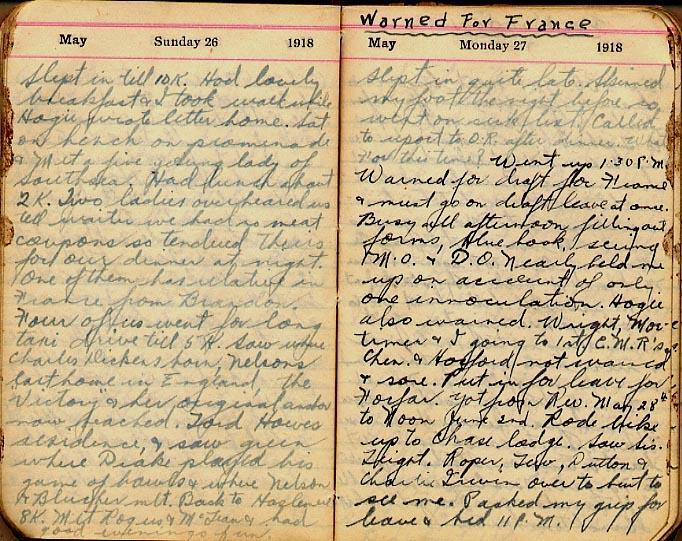 May Sunday 26 1918
Slept in till 10 K. Had lovely
breakfast & I took walk while
Hogie wrote letter home. Sat
on bench on promenade
& Met a fine young lady of
Southsea. Had lunch about
2 K. Two ladies overheared us
tell waiter we had no meat
coupons so tendered theirs
for our dinner at night.
One of them has relative in
France from Brandon.
Four of us went for long
taxi drive till 5 K. Saw where
Charles Dickens born, Nelsons
last home in England, the
Victory & her original anchor
now beached. Lord Howes
residence, & saw green
where Drake played his
game of bowls & where Nelson
& Blucher met. Back to Haslemere
8 K. Met Rogers & McLean & had
good evenings fun.
Warned For France
May Monday 27 1918
Slept in quite late. Skinned
my foot the night before so
went on sick list. Called
to report to O.R. after dinner. What
for this time? Went up 1:30 P.M.
Warned for draft for France
& must go on draft leave at once.
Busy all afternoon filling out
forms, blue book, seeing
M.O. & D.O. Nearly held me
up on account of only
one innoculation. Hogie
also warned. Wright, Mor-
timer & I going to 1st C.M.R's
Chen. & Hosford not warned
& sore. Put in for leave for
Forfar. Got from Nw. May 28th
to Noon June 2nd. Rode bike
up to Chase lodge. Saw Sis.
Knight. Roper, Dutton &
Charlie Irwin over to hut to
see me. Packed my grip for
leave & bed 11 P.M.